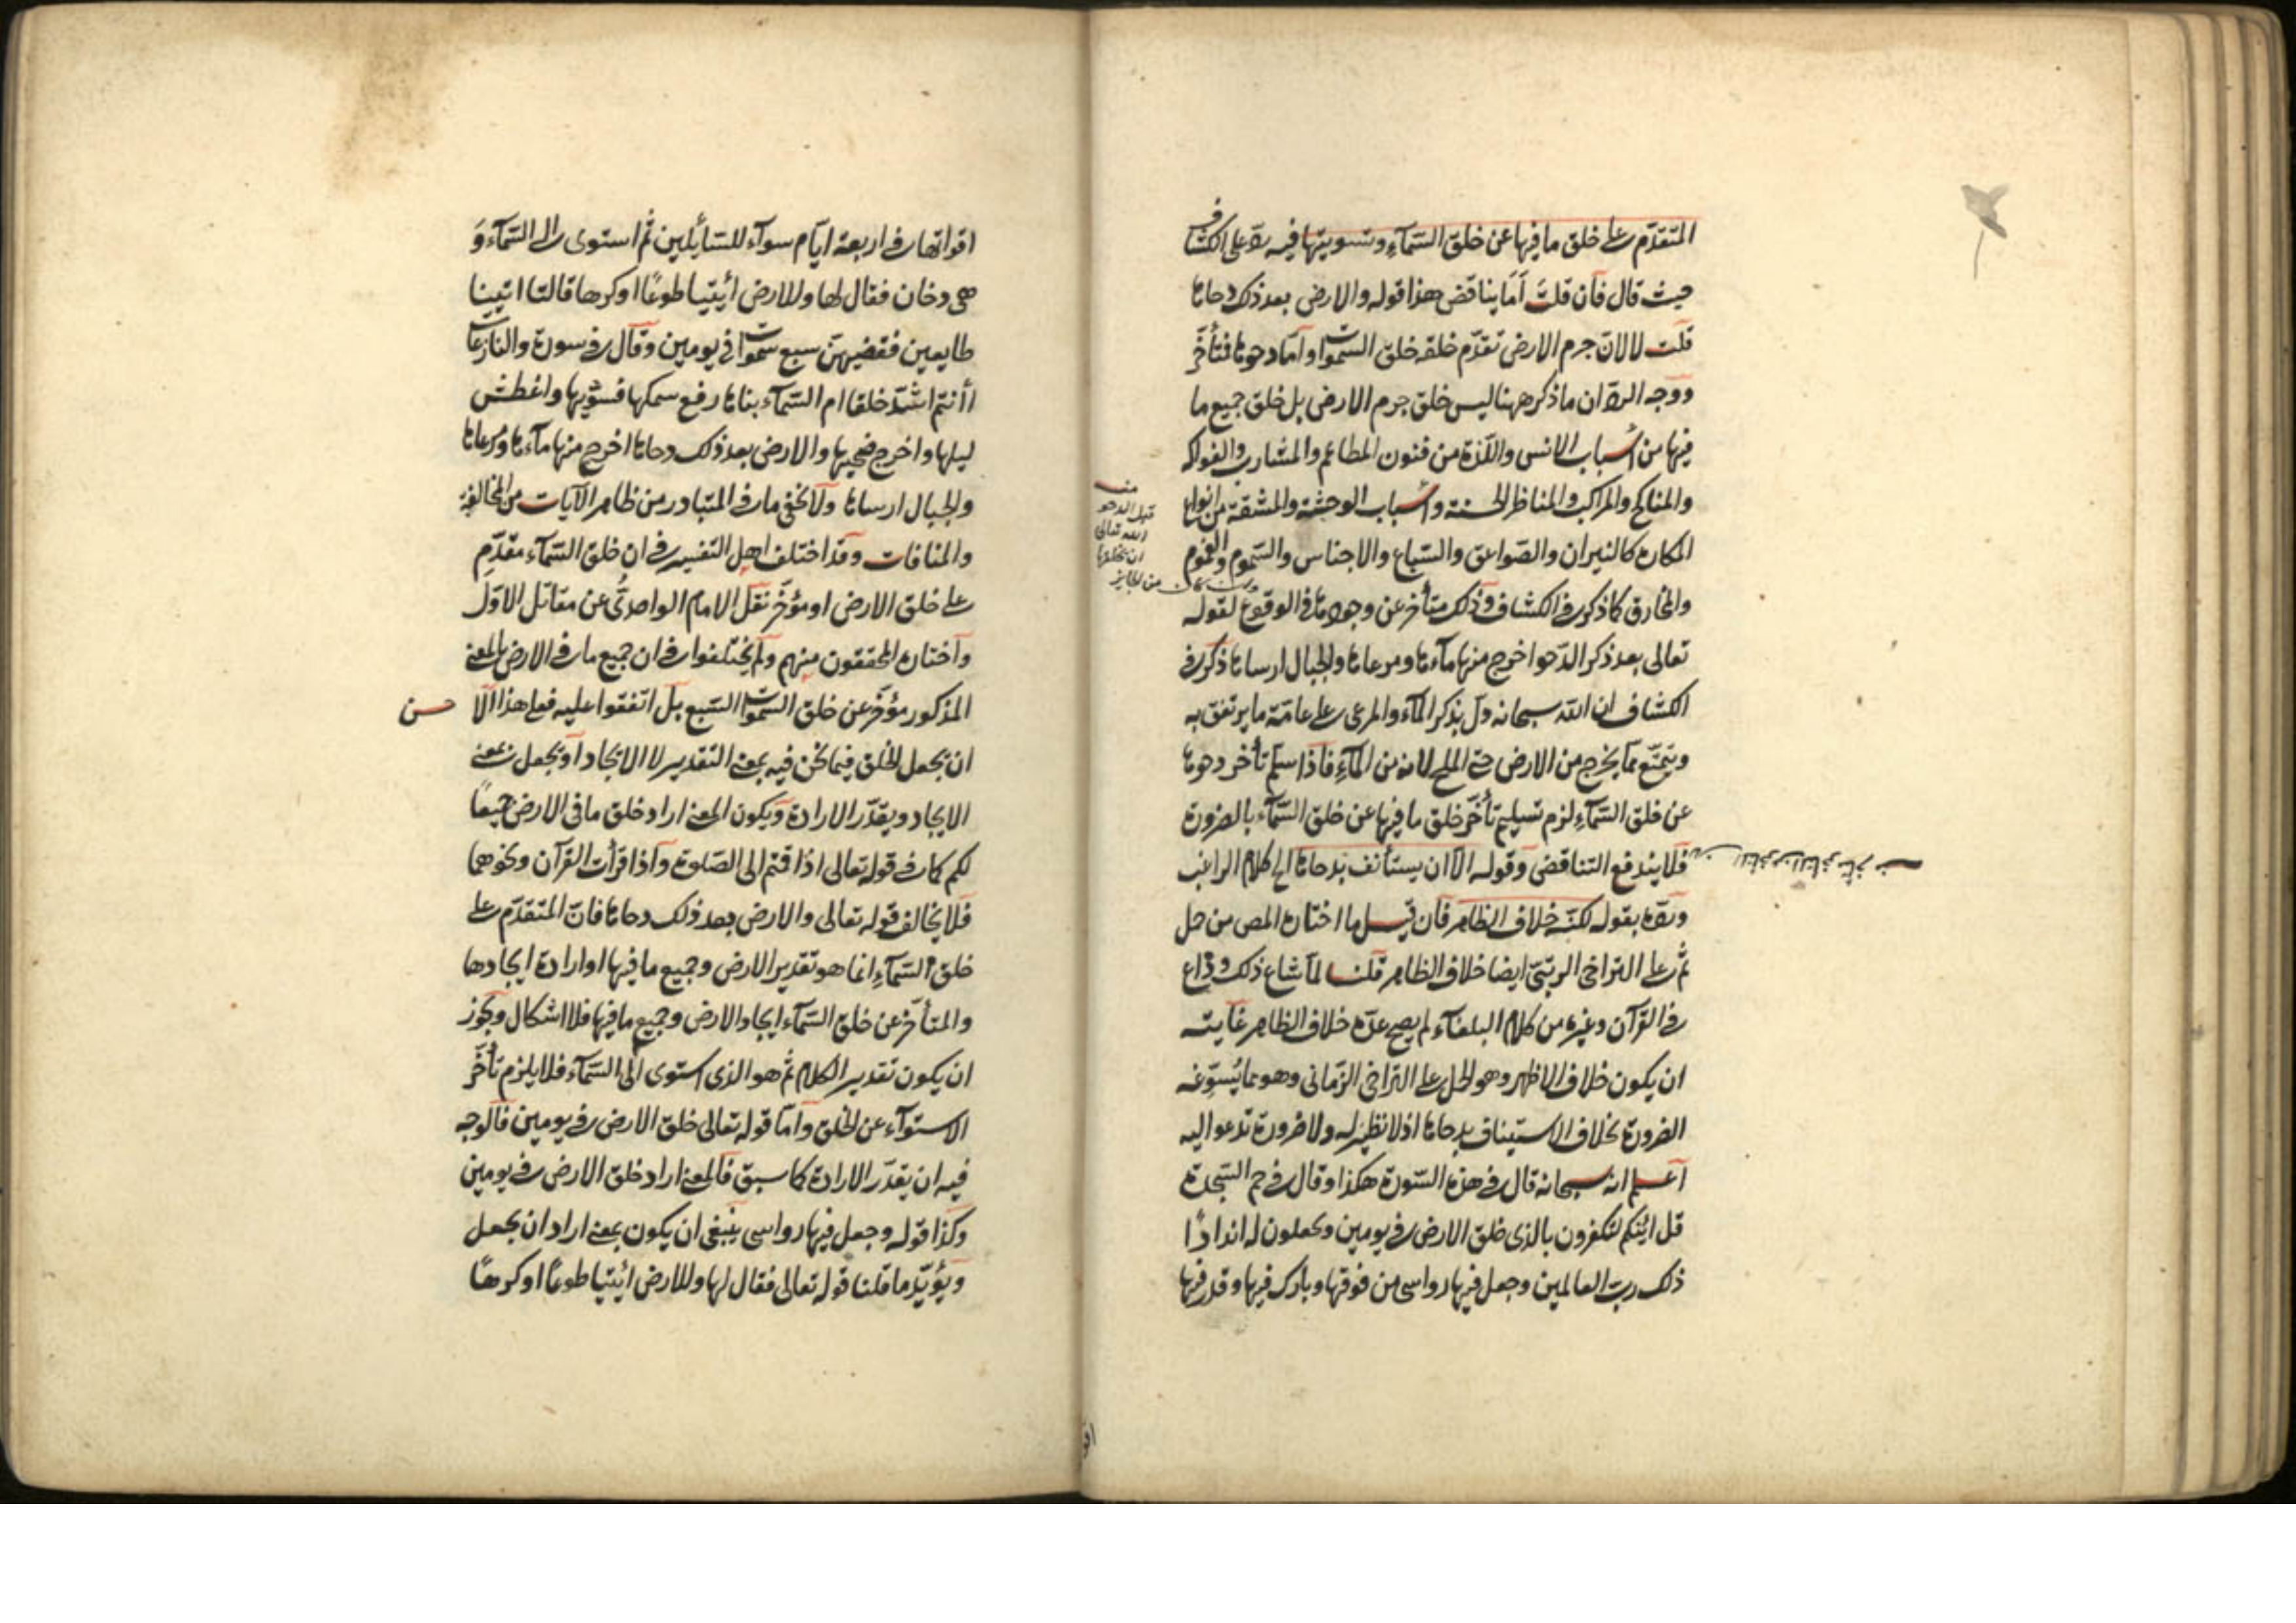 المتقدّم على خلق ما فيها عن خلق السّمآءِ وتسويتها فيه ردّ على الكشّاف
حيث قال فان قلتَ أَمَا يناقض هذا قوله والارض بعد ذلك دحاها
قلت لا لانّ جرم الارض تقدّم خلقه خلق السّموات وامّا دحوها فتأخّر
ووجه الردّ ان ما ذكر ههنا ليس خلق جرم الارض بل خلق جميع ما
فيها من أسباب الانس واللّذة من فنون المطاعم والمشارب والفواكه
والمناكح والمراكب والمناظر الحسنة وأسباب الوحشة والمشقة من انواع
المكاره كالنيران والصّواعق والسّباع والاجناس والسّموم والغموم
والمخاوف كما ذكره في الكشاف وذلك متأخر عن وجودها في الوقوع لقوله
تعالى بعد ذكر الدّحو اخرج منها مآءها ومرعاها والجبال ارساها ذكر في
الكشاف ان اللّه سبحانه دلّ بذكر المآء والمرعى على عامّة ما يرتفق به
ويتمتّع ممّا يخرج من الارض حتى الملح لانه من المآءِ فاذا سلّم تأخر دحوها
عن خلق السّمآءِ لزم تسليم تأخّر خلق ما فيها عن خلق السّمآء بالضرورة
فلا يندفع التناقض وقوله الّا ان يستأنف بدحاها الى كلام الراغب
وردّه بقوله لكنّه خلاف الظاهر فان قيل ما اختاره المص من حمل
ثمّ على التراخى الرتبىّ ايضا خلاف الظاهر قلنا لمّا شاع ذلك وذاع
في القرآن وغيره من كلام البلغآء لم يصح عدّه خلاف الظاهر غايته
ان يكون خلاف الاظهر وهو الحمل على التراخى الزّمانى وهو ممّا يُسوّغه
الضرورة بخلاف الاستيناف بدحاها اذ لا نظير له ولا ضرورة تدعو اليه
اعلم انه سبحانه قال في هذه السّورة هكذا وقال في حم السّجدة
قل ائنّكم لتكفرون بالذى خلق الارض في يومين وتجعلون له اندادًا
ذلك ربّ العالمين وجعل فيها رواسى من فوقها وبارك فيها وقدر فيها
منه
قبل الدحو
اللّه تعالى
ان يخلقها
من الجايز
اقواتها في اربعة ايّام سوآء للسّائلين ثمّ استوى الى السّمآء وَ
هى دخان فقال لها وللارض ائتيا طوعًا او كرها قالتا اتينا
طايعين فقضيهنّ سبع سموات في يومين وقال في سورة والنازعات
أأنتم اشدّ خلقا ام السّمآء بناها رفع سمكها فسوّيها واغطش
ليلها واخرج ضحيها والارض بعد ذلك دحاها اخرج منها مآءها ومرعاها
والجبال ارساها ولا يخفى ما في المتبادر من ظاهر الآيات من المخالفة
والمنافات وقد اختلف اهل التفسير في ان خلق السّمآء مقدّم
على خلق الارض او مؤخّر نقل الامام الواحدىّ عن مقاتل الاوّل
واختاره المحققون منهم ولم يختلفوا في ان جميع ما في الارض بالمعنى
المذكور مؤخّر عن خلق السّموات السّبع بل اتفقوا عليه فعلى هذا الّا
حسن
ان يجعل الخلق فيما نحن فيه بمعنى التقدير لا الايجاد او يجعل بمعنى
الايجاد ويقدّر الارادة ويكون المعنى اراد خلق ما في الارض جميعًا
لكم كما في قوله تعالى اذا قمتم الى الصّلوة واذا قرأت القرآن ونحوهما
فلا يخالف قوله تعالى والارض بعد ذلك دحاها فانّ المتقدّم على
خلق السّمآءِ انما هو تقدير الارض وجميع ما فيها او ارادة ايجادها
والمتأخّر عن خلق السّمآء ايجاد الارض وجميع ما فيها فلا اشكال ويجوز
ان يكون تقدير الكلام ثم هو الذى استوى الى السّمآء فلا يلزم تأخّر
الاستوآء عن الخلق وامّا قوله تعالى خلق الارض في يومين فالوجه
فيه ان يقدّر الارادة كما سبق فالمعنى اراد خلق الارض في يومين
وكذا قوله وجعل فيها رواسى ينبغى ان يكون بمعنى اراد ان يجعل
ويؤيّد ما قلنا قوله تعالى فقال لها وللارض ائتيا طوعًا او كرهًا